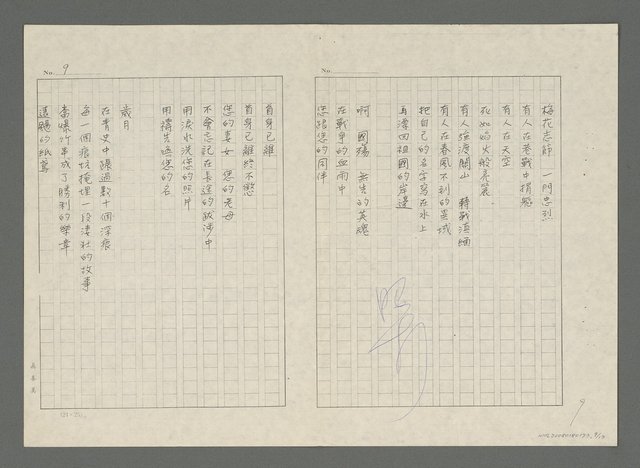 梅花志節 一門忠烈
有人在巷戰中捐軀
有人在天空
死如焰火般亮麗
有人強渡關山 轉戰滇緬
有人在春風不到的異域
把自己的名字寫在水上
再漂回祖國的岸邊
啊 國殤 無告的英魂
在戰爭的血雨中
您跟您的同伴
9
No. 9
首身已離
首身已離終不懲
您的妻女 您的老母
不會忘記在長遠的跋涉中
用淚水洗您的照片
用禱告唸您的名
歲月
在青史中碾過數十個深痕
每一個痕坑掩埋一段淒壯的故事
當爆竹串成了勝利的樂章
遠颺的紙鳶
(24×25)
No.